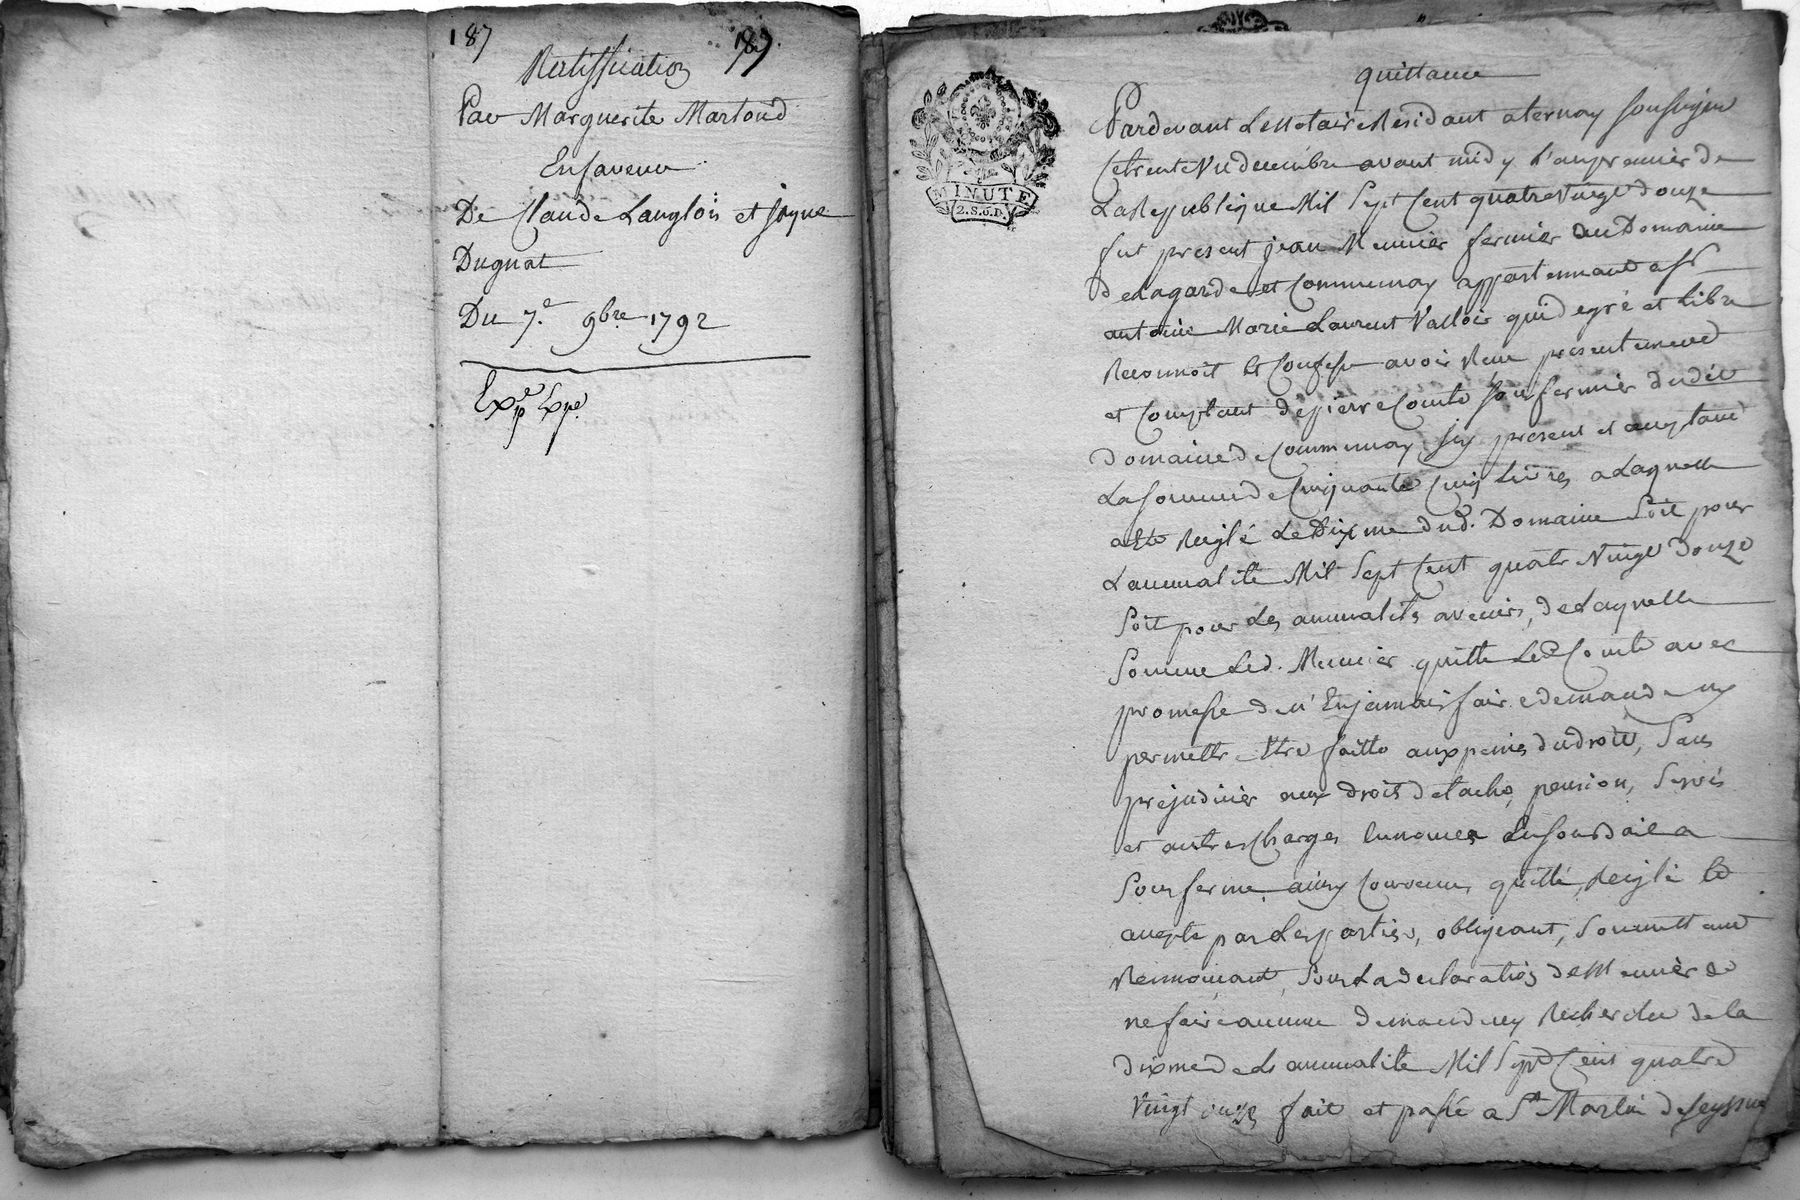 187
187.
Ratiffication
Par Marguerite Martoud
En faveur
De Claude Langlois et
Dugnat
Du 7.e 9bre 1792
Exp.e Exp.e
quittance
MINUTE
2.S.6.D.
Pardevant Le Notaire Résidant a ternay soussigné
Ce trente Un decembre avant midy L'an premier de
La Republique Mil Sept Cent quatre Vingt Douze
fut présent jean Meunier fermier du Domaine
de Lagarde et Communay appartennant a Sr
antoine Marie Laurent Valloir qui de gré et Libre
Reconnoit et Confesse avoir Receu presentement
et Comptant de pierre Comte Sou fermier dudit
domaine de Communay, Icy present et acceptant
La somme de Cinquante Cinq Livres a Laquelle
a été Réiglé Le Dixme dud. Domaine Soit pour
L'annualité Mil Sept Cent quatre Vingt Douze
Soit pour Les annualités avenirs, de Laquelle
Somme Led. Meunier quitte Led. Comte avec
promesse de n'En jamais faire demande ny
permettre Etre faitte aux peines du droit, Sans
préjudicier aux droits de tache, pension, Servis
et autres Charges Enoncées En son Bail a
Sous ferme, ainsy Convenu, quitté, Reiglé et
accepté par Les parties, obligeant, Soumettant
Rennonçant, Sous La declaration de Meunier de
ne faire aucune demande ny Recherche de la
dixme de L'annualité Mil Sept Cent quatre
Vingt onze fait et passé a St Martin de